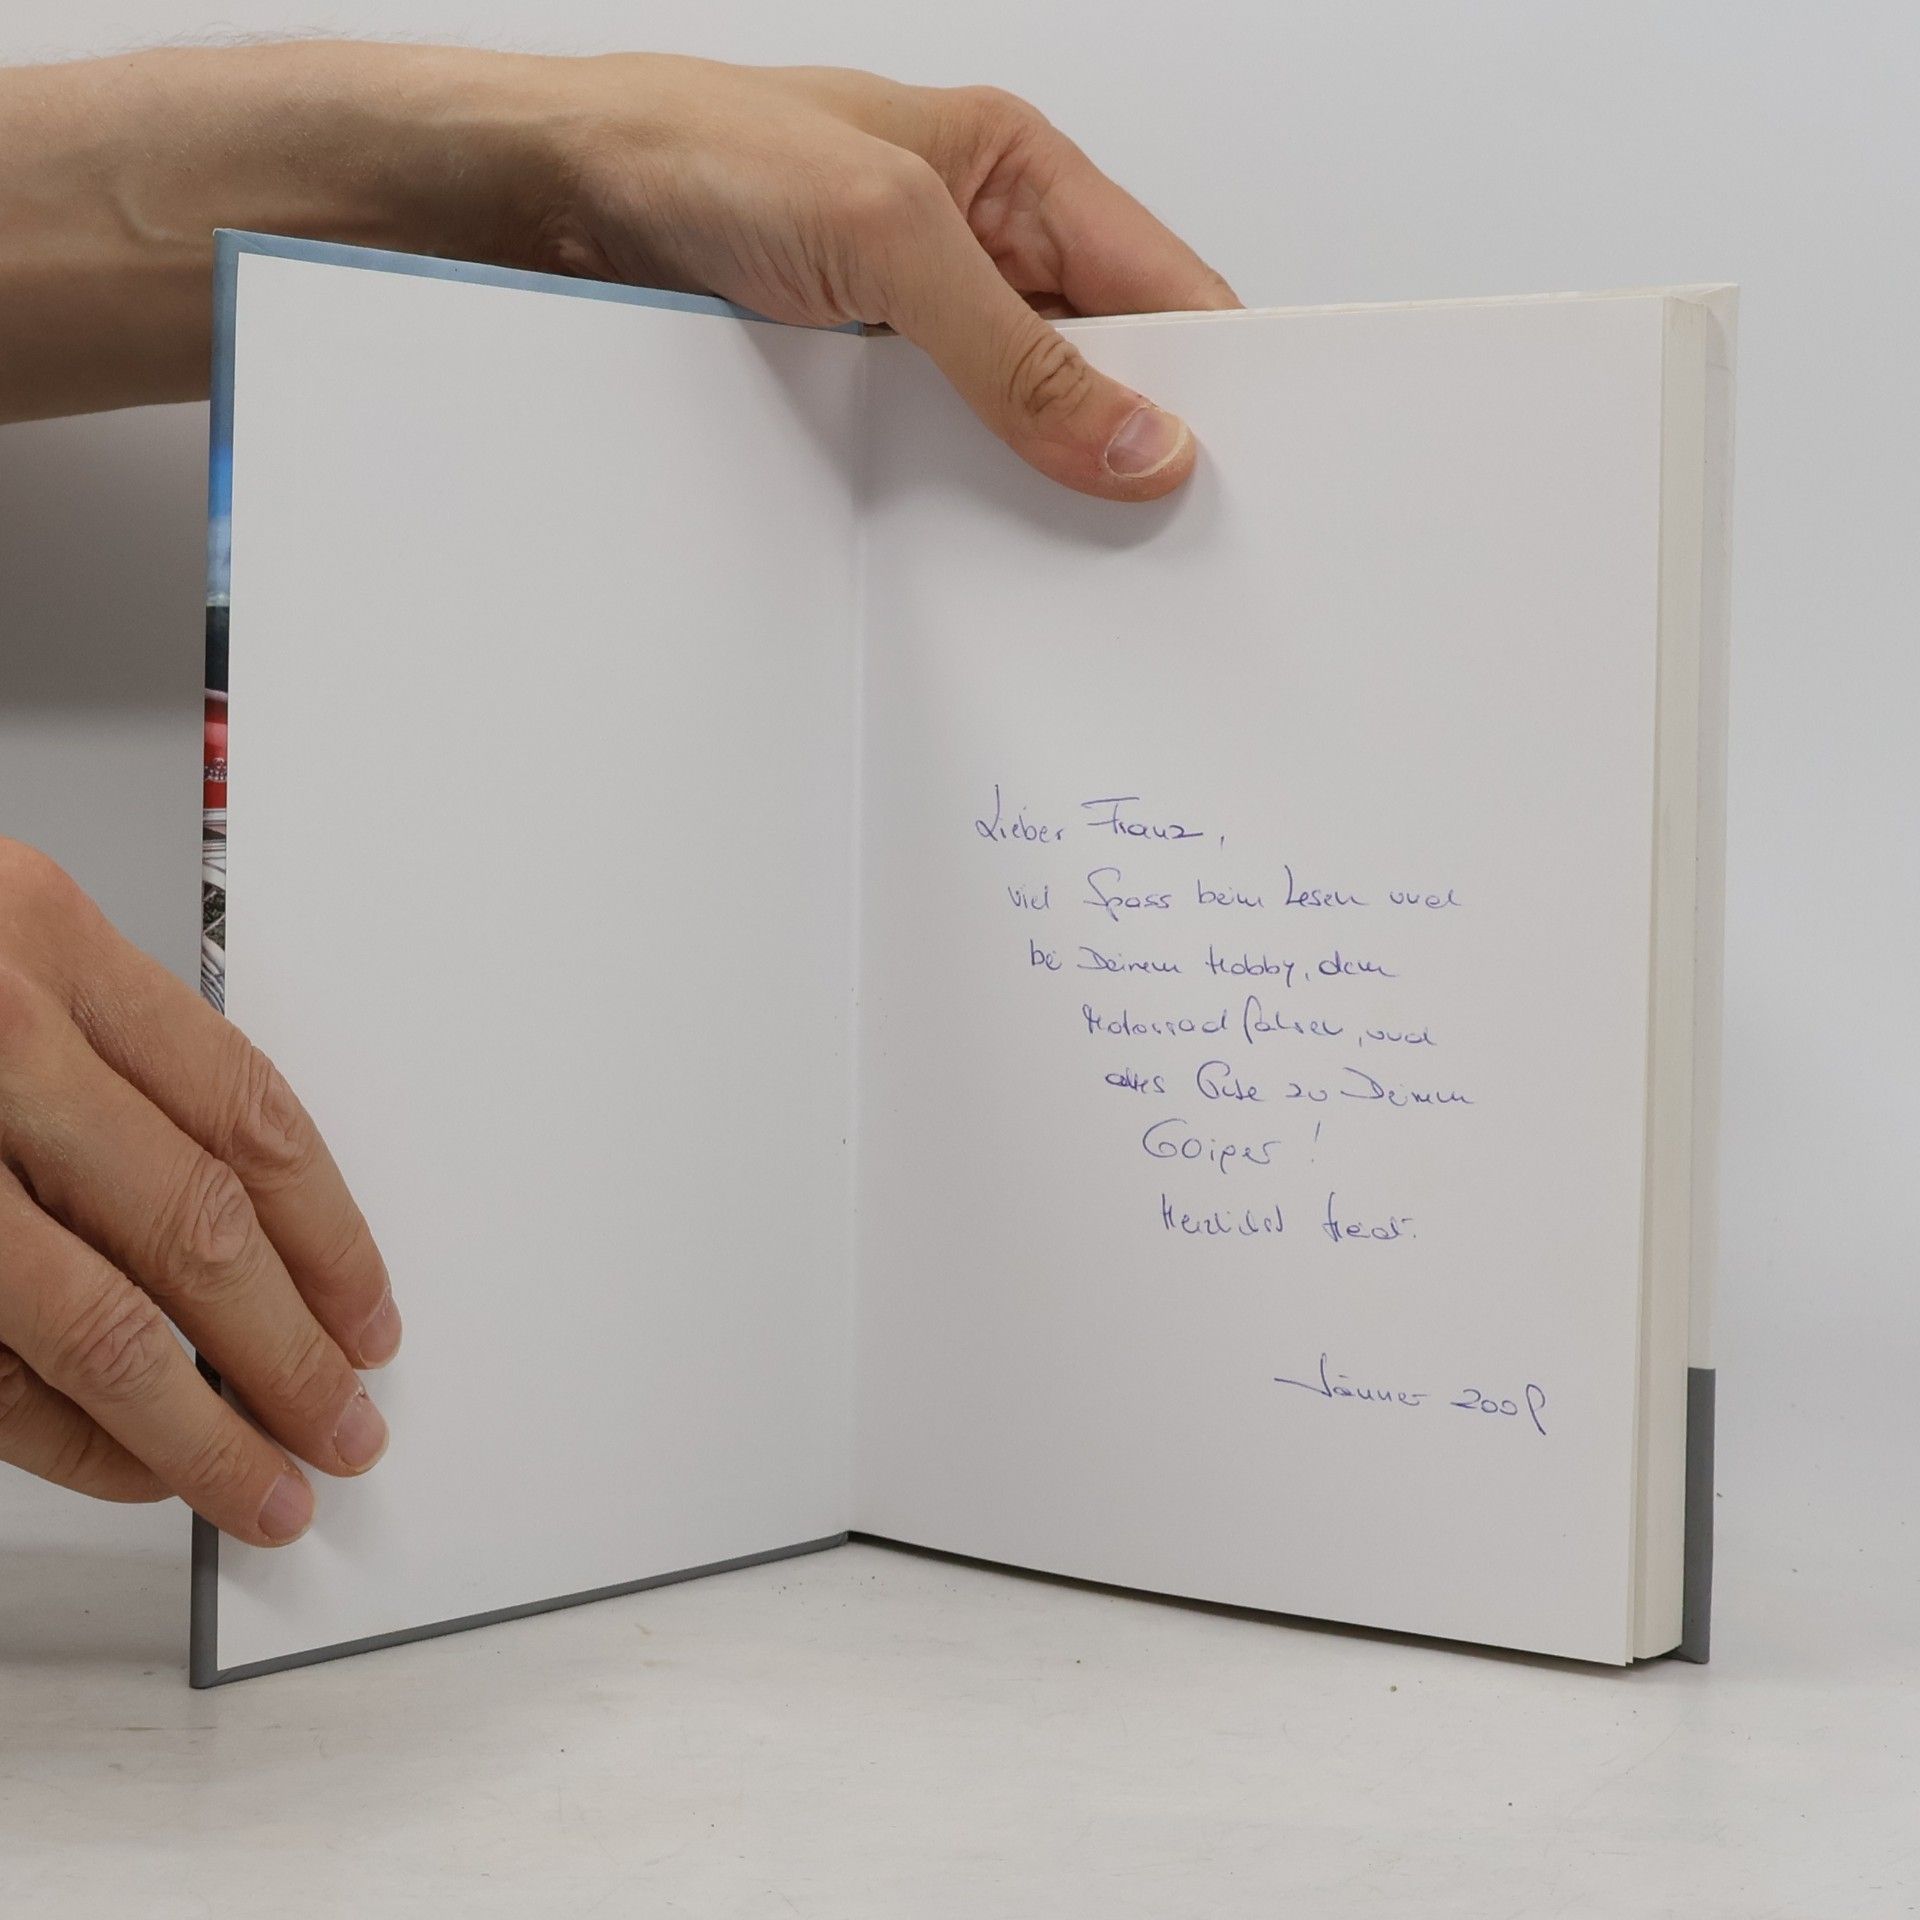 Lieber Franz,
viel Spass beim Lesen und
bei Deinem Hobby, dem
Motorradfahren, und
alles Gute zu Deinem
60iger!
Herzlichst
Jänner 2009